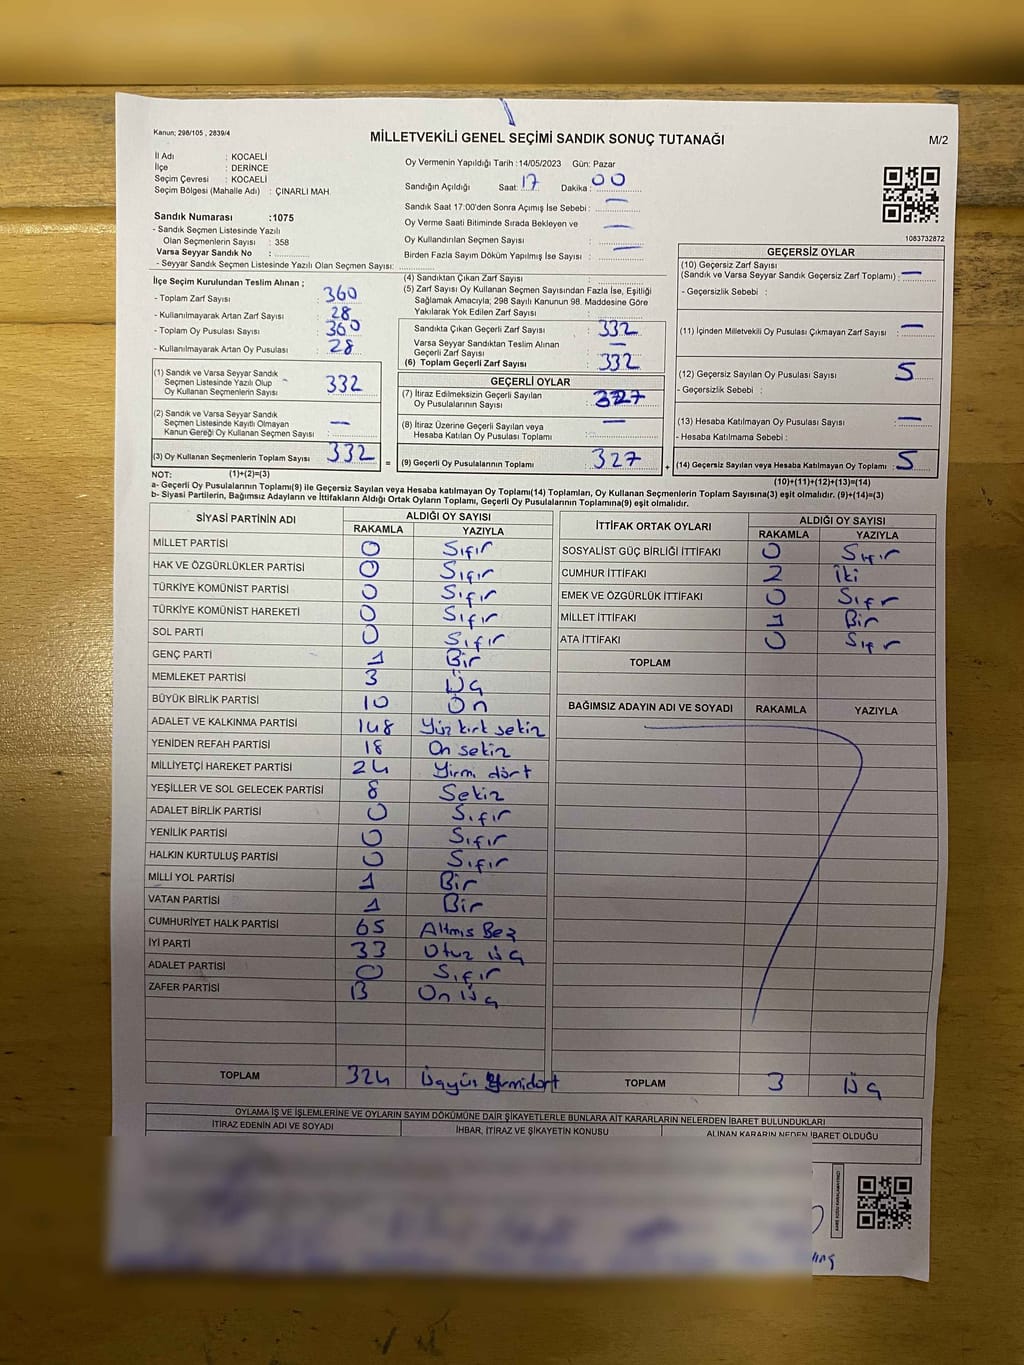 Kanun; 298/105 , 2839/4
MİLLETVEKİLİ GENEL SEÇİMİ SANDIK SONUÇ TUTANAĞI
M/2
İl Adı : KOCAELİ
İlçe : DERİNCE
Seçim Çevresi : KOCAELİ
Seçim Bölgesi (Mahalle Adı) : ÇINARLI MAH.
Sandık Numarası :1075
- Sandık Seçmen Listesinde Yazılı
Olan Seçmenlerin Sayısı : 358
Varsa Seyyar Sandık No :
- Seyyar Sandık Seçmen Listesinde Yazılı Olan Seçmen Sayısı:
Oy Vermenin Yapıldığı Tarih : 14/05/2023 Gün: Pazar
Sandığın Açıldığı Saat: 17 Dakika : 00
Sandık Saat 17:00'den Sonra Açımış İse Sebebi : —
Oy Verme Saati Bitiminde Sırada Bekleyen ve
Oy Kullandırılan Seçmen Sayısı : —
Birden Fazla Sayım Döküm Yapılmış İse Sayısı : —
1083732872
İlçe Seçim Kurulundan Teslim Alınan ;
- Toplam Zarf Sayısı : 360
- Kullanılmayarak Artan Zarf Sayısı : 28
- Toplam Oy Pusulası Sayısı : 360
- Kullanılmayarak Artan Oy Pusulası : 28
(1) Sandık ve Varsa Seyyar Sandık
Seçmen Listesinde Yazılı Olup
Oy Kullanan Seçmenlerin Sayısı : 332
(2) Sandık ve Varsa Seyyar Sandık
Seçmen Listesinde Kayıtlı Olmayan
Kanun Gereği Oy Kullanan Seçmen Sayısı : —
(3) Oy Kullanan Seçmenlerin Toplam Sayısı : 332
(1)+(2)=(3)
(4) Sandıktan Çıkan Zarf Sayısı :
(5) Zarf Sayısı Oy Kullanan Seçmen Sayısından Fazla İse, Eşitliği
Sağlamak Amacıyla; 298 Sayılı Kanunun 98. Maddesine Göre
Yakılarak Yok Edilen Zarf Sayısı :
Sandıkta Çıkan Geçerli Zarf Sayısı : 332
Varsa Seyyar Sandıktan Teslim Alınan
Geçerli Zarf Sayısı : —
(6) Toplam Geçerli Zarf Sayısı : 332
GEÇERLİ OYLAR
(7) İtiraz Edilmeksizin Geçerli Sayılan
Oy Pusulalarının Sayısı : 327
(8) İtiraz Üzerine Geçerli Sayılan veya
Hesaba Katılan Oy Pusulası Toplamı : —
= (9) Geçerli Oy Pusulalarının Toplamı : 327
GEÇERSİZ OYLAR
(10) Geçersiz Zarf Sayısı
(Sandık ve Varsa Seyyar Sandık Geçersiz Zarf Toplamı) : —
- Geçersizlik Sebebi :
(11) İçinden Milletvekili Oy Pusulası Çıkmayan Zarf Sayısı : —
(12) Geçersiz Sayılan Oy Pusulası Sayısı : 5
- Geçersizlik Sebebi :
(13) Hesaba Katılmayan Oy Pusulası Sayısı : —
- Hesaba Katılmama Sebebi :
+ (14) Geçersiz Sayılan veya Hesaba Katılmayan Oy Toplamı : 5
(10)+(11)+(12)+(13)=(14)
NOT:
a- Geçerli Oy Pusulalarının Toplamı(9) ile Geçersiz Sayılan veya Hesaba katılmayan Oy Toplamı(14) Toplamları, Oy Kullanan Seçmenlerin Toplam Sayısına(3) eşit olmalıdır. (9)+(14)=(3)
b- Siyasi Partilerin, Bağımsız Adayların ve İttifakların Aldığı Ortak Oyların Toplamı, Geçerli Oy Pusulalarının Toplamına(9) eşit olmalıdır.
SİYASİ PARTİNİN ADI ALDIĞI OY SAYISI
RAKAMLA YAZIYLA
MİLLET PARTİSİ 0 Sıfır
HAK VE ÖZGÜRLÜKLER PARTİSİ 0 Sıfır
TÜRKİYE KOMÜNİST PARTİSİ 0 Sıfır
TÜRKİYE KOMÜNİST HAREKETİ 0 Sıfır
SOL PARTİ 0 Sıfır
GENÇ PARTİ 1 Bir
MEMLEKET PARTİSİ 3 Üç
BÜYÜK BİRLİK PARTİSİ 10 On
ADALET VE KALKINMA PARTİSİ 148 Yüz kırk sekiz
YENİDEN REFAH PARTİSİ 18 On sekiz
MİLLİYETÇİ HAREKET PARTİSİ 24 Yirmi dört
YEŞİLLER VE SOL GELECEK PARTİSİ 8 Sekiz
ADALET BİRLİK PARTİSİ 0 Sıfır
YENİLİK PARTİSİ 0 Sıfır
HALKIN KURTULUŞ PARTİSİ 0 Sıfır
MİLLİ YOL PARTİSİ 1 Bir
VATAN PARTİSİ 1 Bir
CUMHURİYET HALK PARTİSİ 65 Altmış Beş
İYİ PARTİ 33 Otuz üç
ADALET PARTİSİ 0 Sıfır
ZAFER PARTİSİ 13 On üç
TOPLAM 324 Üçyüz Yirmidört
İTTİFAK ORTAK OYLARI ALDIĞI OY SAYISI
RAKAMLA YAZIYLA
SOSYALİST GÜÇ BİRLİĞİ İTTİFAKI 0 Sıfır
CUMHUR İTTİFAKI 2 İki
EMEK VE ÖZGÜRLÜK İTTİFAKI 0 Sıfır
MİLLET İTTİFAKI 1 Bir
ATA İTTİFAKI 0 Sıfır
TOPLAM
BAĞIMSIZ ADAYIN ADI VE SOYADI RAKAMLA YAZIYLA
TOPLAM 3 Üç
OYLAMA İŞ VE İŞLEMLERİNE VE OYLARIN SAYIM DÖKÜMÜNE DAİR ŞİKAYETLERLE BUNLARA AİT KARARLARIN NELERDEN İBARET BULUNDUKLARI
İTİRAZ EDENİN ADI VE SOYADI İHBAR, İTİRAZ VE ŞİKAYETİN KONUSU ALINAN KARARIN NEDEN İBARET OLDUĞU